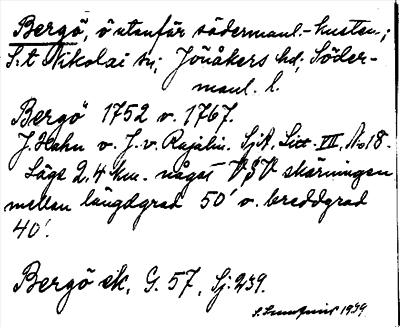 Bergö, ö utanför södermanl.-kusten;
S:t Nikolai sn; Jönåkers hd; Söder-
manl. l.
Bergö 1752 o. 1767.
J. Hahn o. J. v. Rajalin. SjA, Litt. VII, No 18.
Läge 2,4 km. något VSV skärningen
mellan längdgrad 50' o. breddgrad
40'.
Bergö ek. G. 57, Sj. 239.
S. Sundqvist 1939.